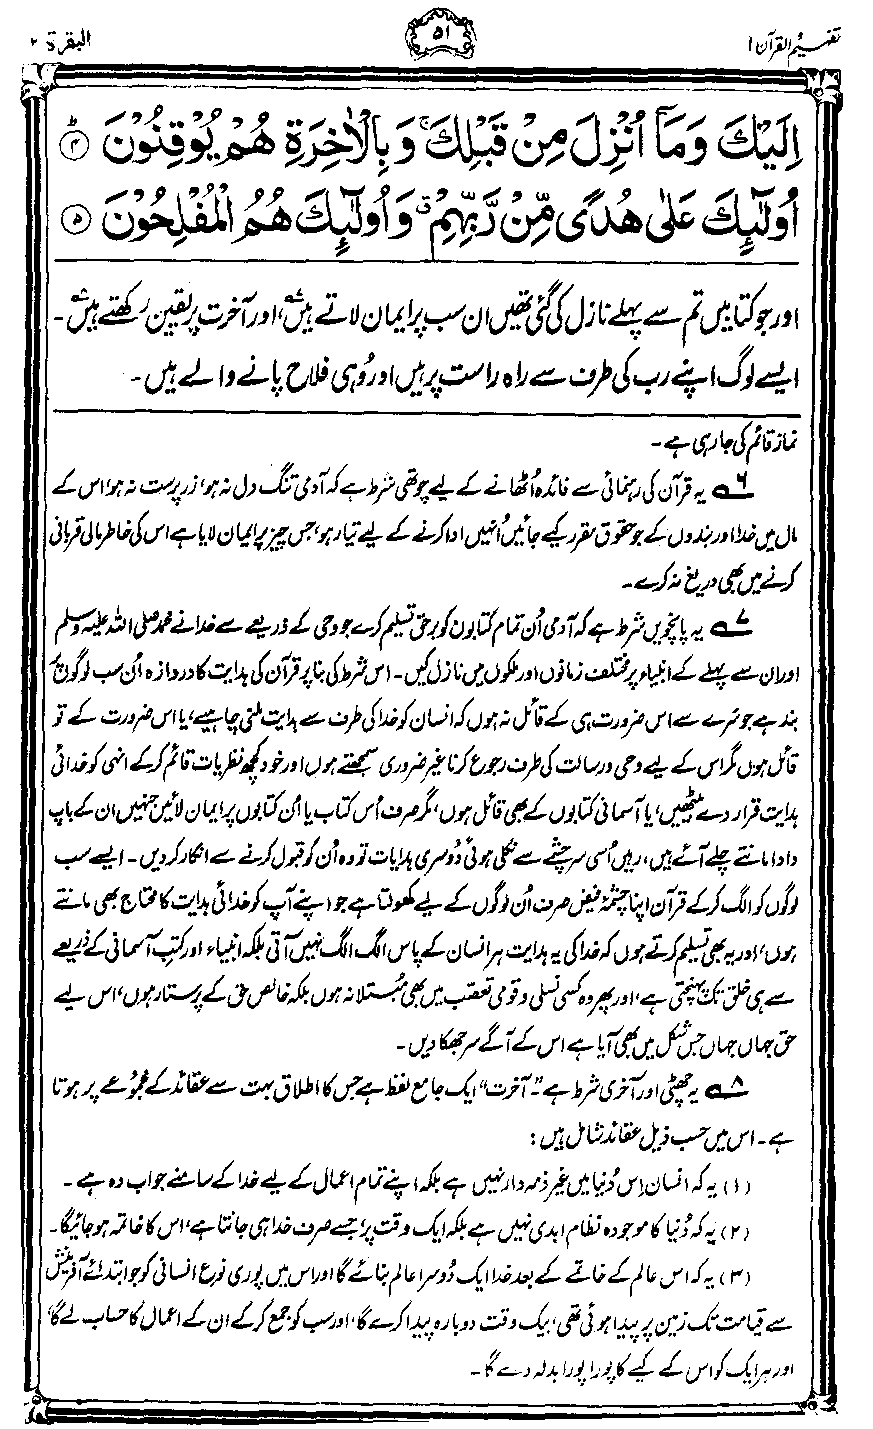 تفہیم القرآن ۱
۵۱
البقرۃ ۲
اِلَيْكَ وَمَاۤ اُنْزِلَ مِنْ قَبْلِكَ ۚ وَبِالْاٰخِرَةِ هُمْ يُوْقِنُوْنَ ؕ ﴿۴﴾
اُولٰٓئِكَ عَلٰى هُدًى مِّنْ رَّبِّهِمْ ۗ وَاُولٰٓئِكَ هُمُ الْمُفْلِحُوْنَ ﴿۵﴾
اور جو کتابیں تم سے پہلے نازل کی گئی تھیں ان سب پر ایمان لاتے ہیں۷ ، اور آخرت پر یقین رکھتے ہیں۸ ۔
ایسے لوگ اپنے رب کی طرف سے راہ راست پر ہیں اور وُہی فلاح پانے والے ہیں ۔
نماز قائم کی جا رہی ہے ۔
۶ یہ قرآن کی رہنمائی سے فائدہ اُٹھانے کے لیے چوتھی شرط ہے کہ آدمی تنگ دل نہ ہو، زر پرست نہ ہو، اس کے
مال میں خدا اور بندوں کے جو حقوق مقرر کیے جائیں اُنہیں ادا کرنے کے لیے تیار ہو، جس چیز پر ایمان لایا ہے اس کی خاطر مالی قربانی
کرنے میں بھی دریغ نہ کرے ۔
۷ یہ پانچویں شرط ہے کہ آدمی اُن تمام کتابوں کو برحق تسلیم کرے جو وحی کے ذریعے سے خدا نے محمد صلی اللہ علیہ وسلم
اور ان سے پہلے کے انبیاء پر مختلف زمانوں اور ملکوں میں نازل کیں ۔ اس شرط کی بنا پر قرآن کی ہدایت کا دروازہ اُن سب لوگوں پر
بند ہے جو سرے سے اس ضرورت ہی کے قائل نہ ہوں کہ انسان کو خدا کی طرف سے ہدایت ملنی چاہیے، یا اس ضرورت کے تو
قائل ہوں مگر اس کے لیے وحی و رسالت کی طرف رجوع کرنا غیر ضروری سمجھتے ہوں اور خود کچھ نظریات قائم کر کے انہی کو خدائی
ہدایت قرار دے بیٹھیں، یا آسمانی کتابوں کے بھی قائل ہوں، مگر صرف اُس کتاب یا اُن کتابوں پر ایمان لائیں جنہیں ان کے باپ
دادا مانتے چلے آئے ہیں، رہیں اُسی سرچشمے سے نکلی ہوئی دُوسری ہدایات تو وہ اُن کو قبول کرنے سے انکار کر دیں ۔ ایسے سب
لوگوں کو الگ کر کے قرآن اپنا چشمۂ فیض صرف اُن لوگوں کے لیے کھولتا ہے جو اپنے آپ کو خدائی ہدایت کا محتاج بھی مانتے
ہوں، اور یہ بھی تسلیم کرتے ہوں کہ خدا کی یہ ہدایت ہر انسان کے پاس الگ الگ نہیں آتی بلکہ انبیاء اور کتبِ آسمانی کے ذریعے
سے ہی خلق تک پہنچتی ہے، اور پھر وہ کسی نسلی و قومی تعصب میں بھی مُبتلا نہ ہوں بلکہ خالص حق کے پرستار ہوں، اس لیے
حق جہاں جہاں جس شکل میں بھی آیا ہے اس کے آگے سر جھکا دیں ۔
۸ یہ چھٹی اور آخری شرط ہے ۔ "آخرت" ایک جامع لفظ ہے جس کا اطلاق بہت سے عقائد کے مجمُوعے پر ہوتا
ہے ۔ اس میں حسب ذیل عقائد شامل ہیں :
(۱) یہ کہ انسان اِس دُنیا میں غیر ذمہ دار نہیں ہے بلکہ اپنے تمام اعمال کے لیے خدا کے سامنے جواب دہ ہے ۔
(۲) یہ کہ دُنیا کا موجودہ نظام ابدی نہیں ہے بلکہ ایک وقت پر، جسے صرف خدا ہی جانتا ہے، اس کا خاتمہ ہو جائیگا ۔
(۳) یہ کہ اس عالم کے خاتمے کے بعد خدا ایک دُوسرا عالم بنائے گا اور اس میں پوری نوعِ انسانی کو جو ابتدائے آفرینش
سے قیامت تک زمین پر پیدا ہوئی تھی، بیک وقت دوبارہ پیدا کرے گا، اور سب کو جمع کر کے ان کے اعمال کا حساب لے گا،
اور ہر ایک کو اس کے کیے کا پُورا پُورا بدلہ دے گا ۔